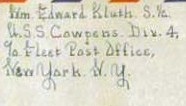 Wm. Edward Kluth. S.1/c.
U.S.S. Cowpens. Div. 4,
c/o Fleet Post Office,
New York. N.Y.